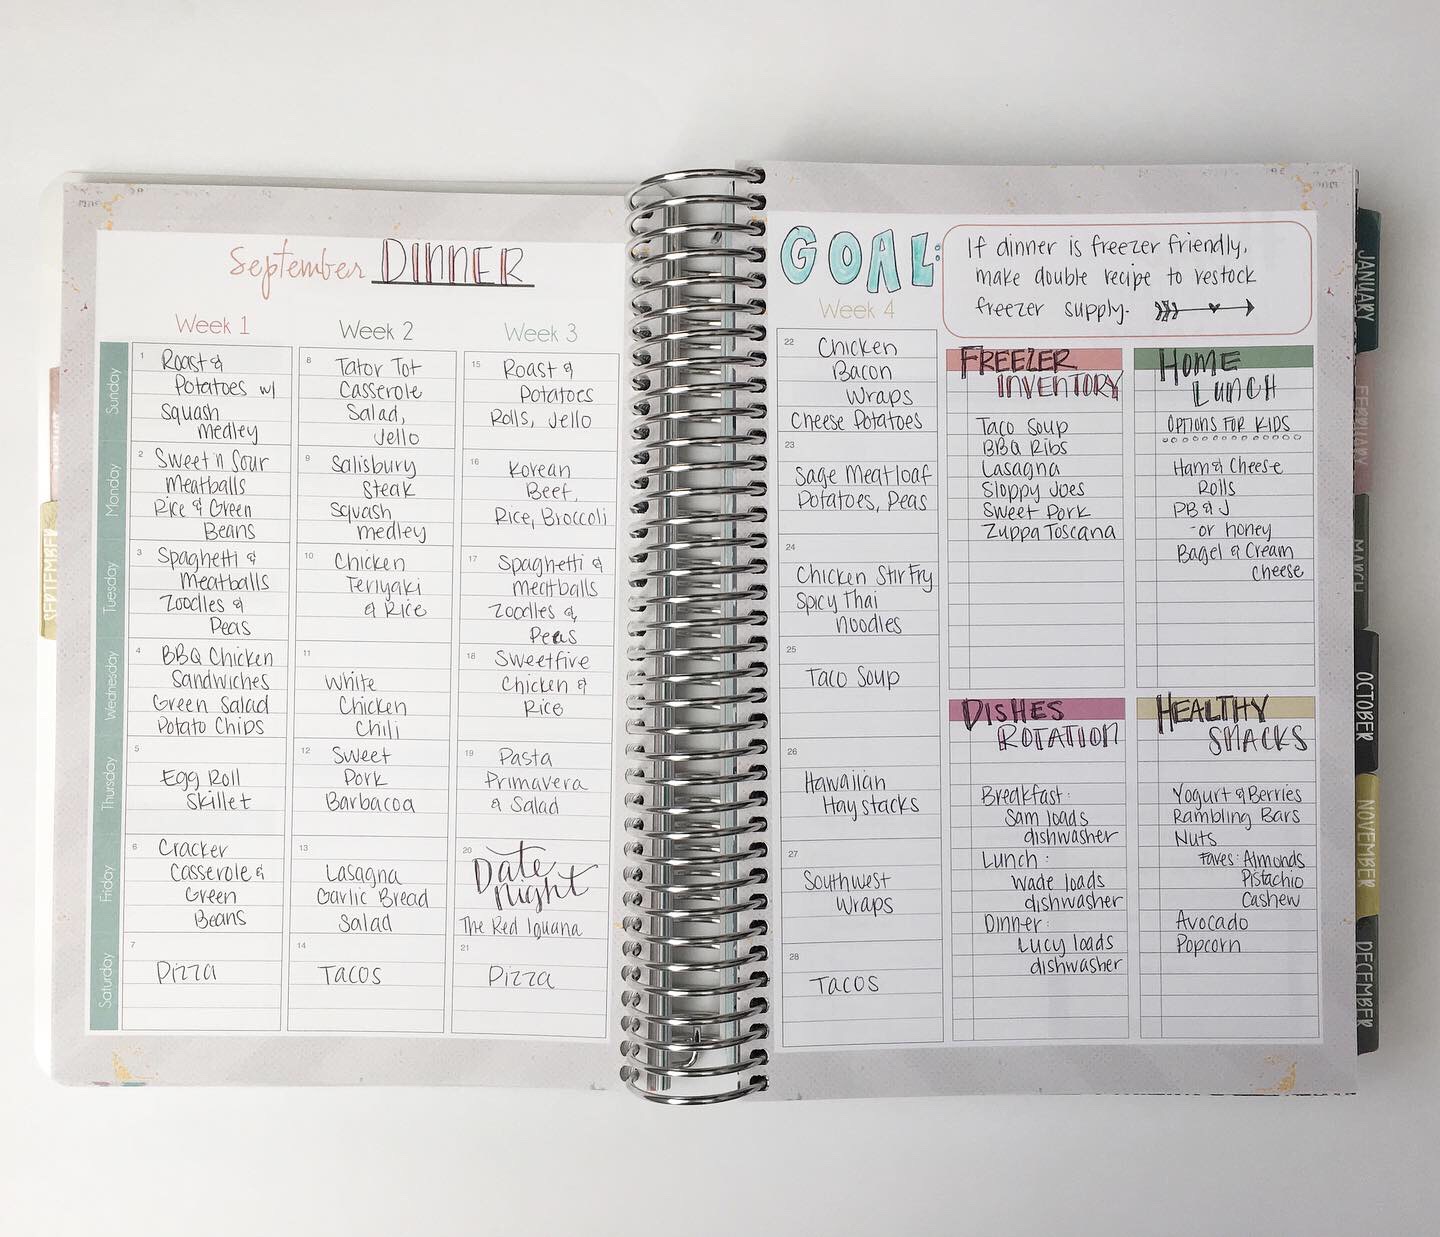 September DINNER
Week 1
Sunday
1 Roast &
Potatoes w/
Squash
medley
Monday
2 Sweet 'n Sour
Meatballs
Rice & Green
Beans
Tuesday
3 Spaghetti &
Meatballs
Zoodles &
Peas
Wednesday
4 BBQ Chicken
Sandwiches
Green Salad
Potato Chips
Thursday
5
Egg Roll
Skillet
Friday
6 Cracker
Casserole &
Green
Beans
Saturday
7
Pizza
Week 2
8 Tator Tot
Casserole
Salad,
Jello
9 Salisbury
Steak
Squash
medley
10 Chicken
Teriyaki
& Rice
11
White
Chicken
Chili
12 Sweet
Pork
Barbacoa
13
Lasagna
Garlic Bread
Salad
14
Tacos
Week 3
15 Roast &
Potatoes
Rolls, Jello
16 Korean
Beef,
Rice, Broccoli
17 Spaghetti &
meatballs
Zoodles &
Peas
18 Sweetfire
Chicken &
Rice
19 Pasta
Primavera
& Salad
20 Date
night
The Red Iguana
21
Pizza
GOAL:
If dinner is freezer friendly,
make double recipe to restock
freezer supply.
Week 4
22 Chicken
Bacon
Wraps
Cheese Potatoes
23
Sage Meatloaf
Potatoes, Peas
24
Chicken Stir Fry
Spicy Thai
noodles
25
Taco Soup
26
Hawaiian
Haystacks
27
Southwest
Wraps
28
Tacos
FREEZER
INVENTORY
Taco Soup
BBQ Ribs
Lasagna
Sloppy Joes
Sweet Pork
Zuppa Toscana
HOME
LUNCH
OPTIONS FOR KIDS
Ham & Cheese
Rolls
PB & J
- or honey
Bagel & Cream
Cheese
DISHES
ROTATION
Breakfast:
Sam loads
dishwasher
Lunch:
Wade loads
dishwasher
Dinner:
Lucy loads
dishwasher
HEALTHY
SNACKS
Yogurt & Berries
Rambling Bars
Nuts
Faves: Almonds
Pistachio
Cashew
Avocado
Popcorn
SEPTEMBER
JANUARY
FEBRUARY
MARCH
OCTOBER
NOVEMBER
DECEMBER